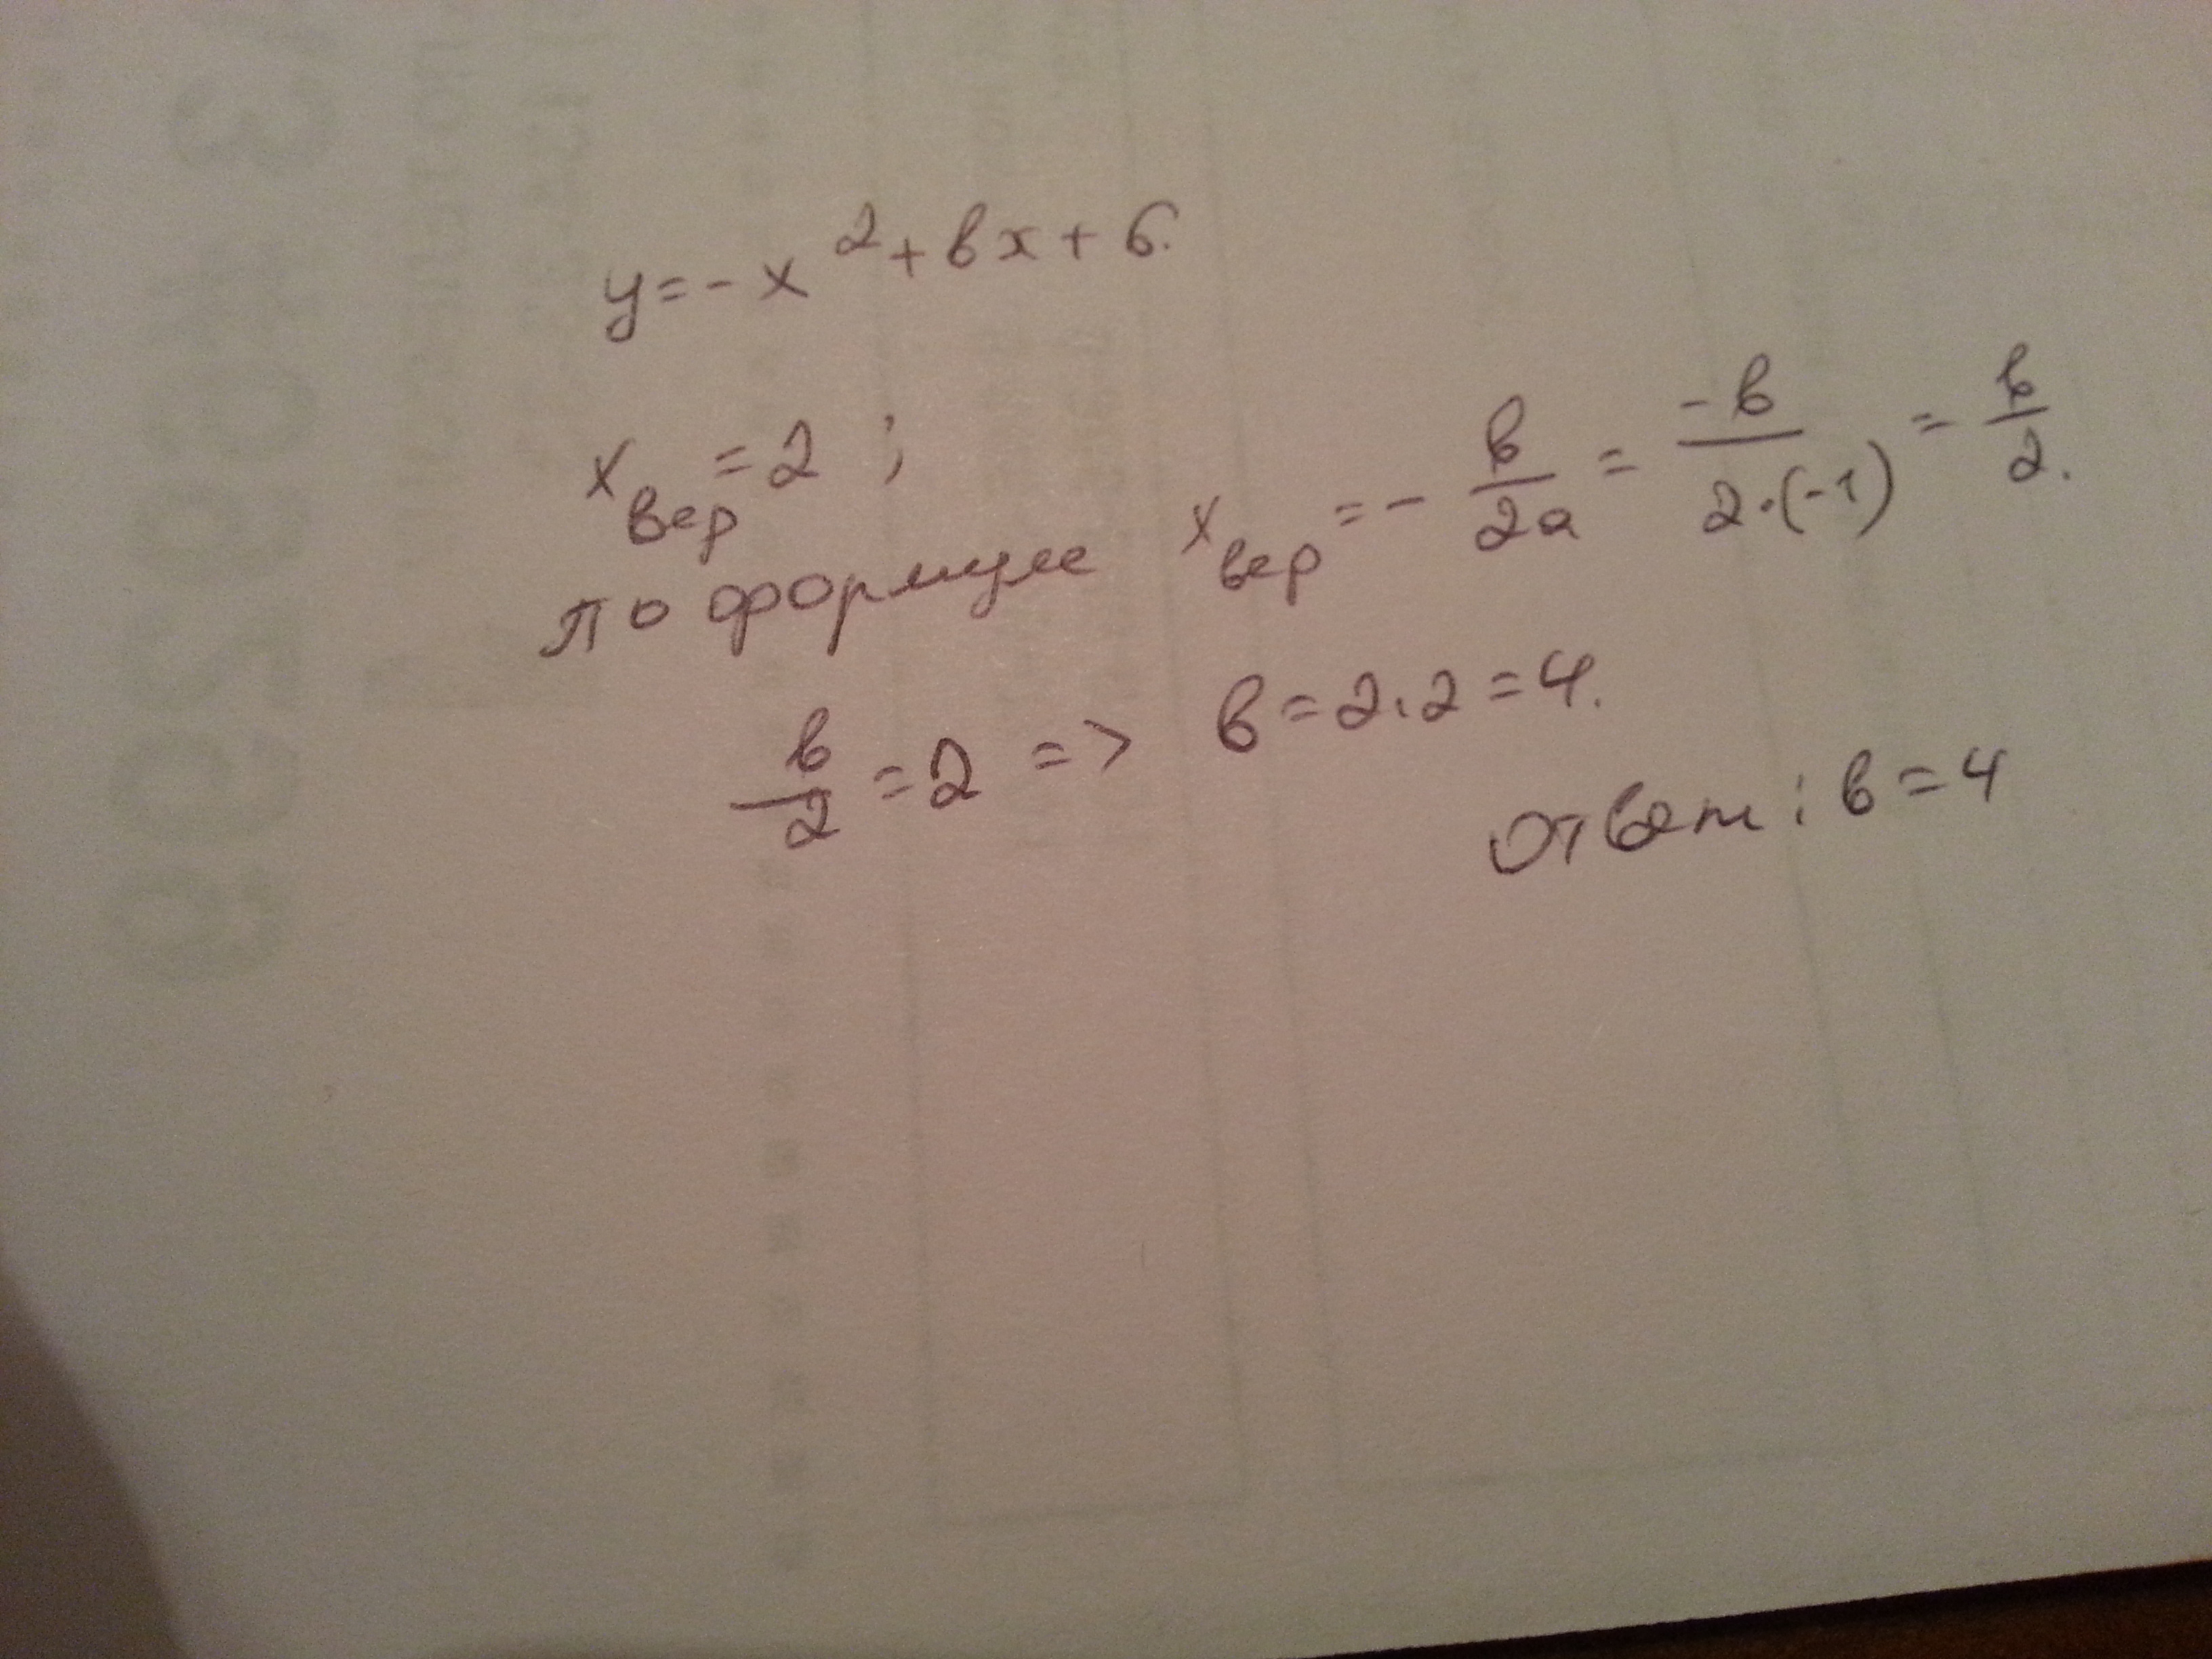 y=-x²+вx+6.
x вер =2 ;
по формуле x вер =- в/2a = -в/2·(-1) = в/2.
в/2 =2 => в=2·2=4.
Ответ: в=4